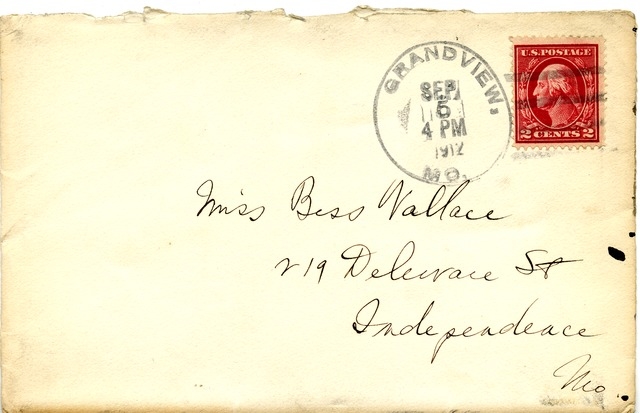 GRANDVIEW,
SEP
5
4 PM
1912
MO.
U.S. POSTAGE
2 CENTS 2
Miss Bess Wallace
219 Delaware St
Independence
Mo.